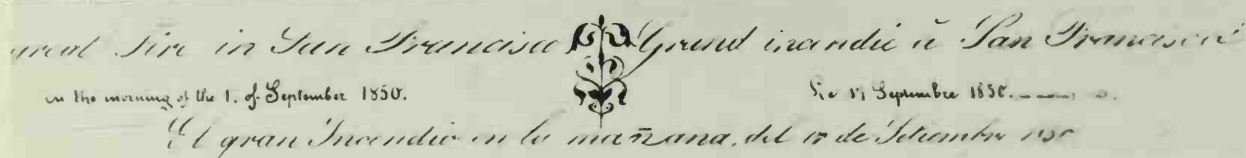 Great Fire in San Francisco Grand incendie à San Francisco
in the morning of the 1. of September 1850. Le 17 Septembre 1850.
El gran Incendio en la mañana del 17 de Setiembre 1850